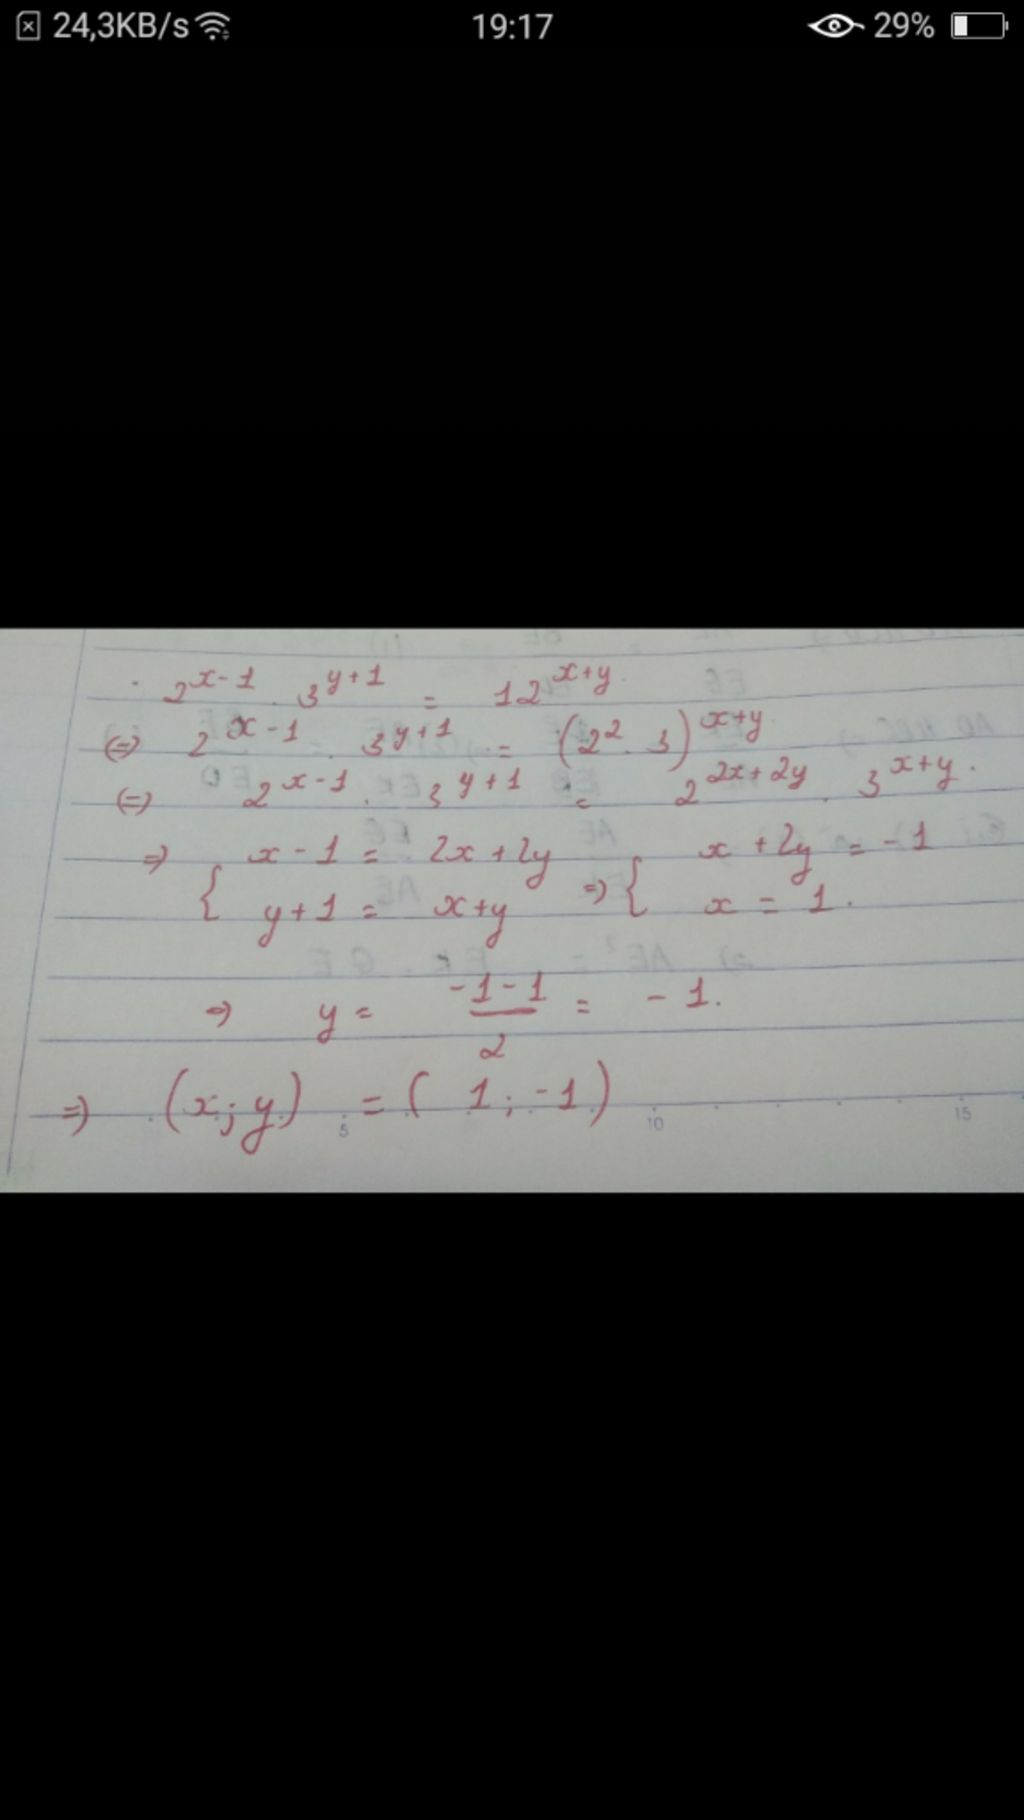 24,3KB/s 19:17 29%
. 2^{x-1} . 3^{y+1} = 12^{x+y}.
(=) 2^{x-1} . 3^{y+1} = (2^2 . 3)^{x+y}.
(=) 2^{x-1} . 3^{y+1} = 2^{2x+2y} . 3^{x+y}.
=) { x-1 = 2x+2y =) { x+2y = -1
y+1 = x+y x = 1.
=) y = \frac{-1-1}{2} = -1.
=) (x;y) = (1;-1)
5 10 15